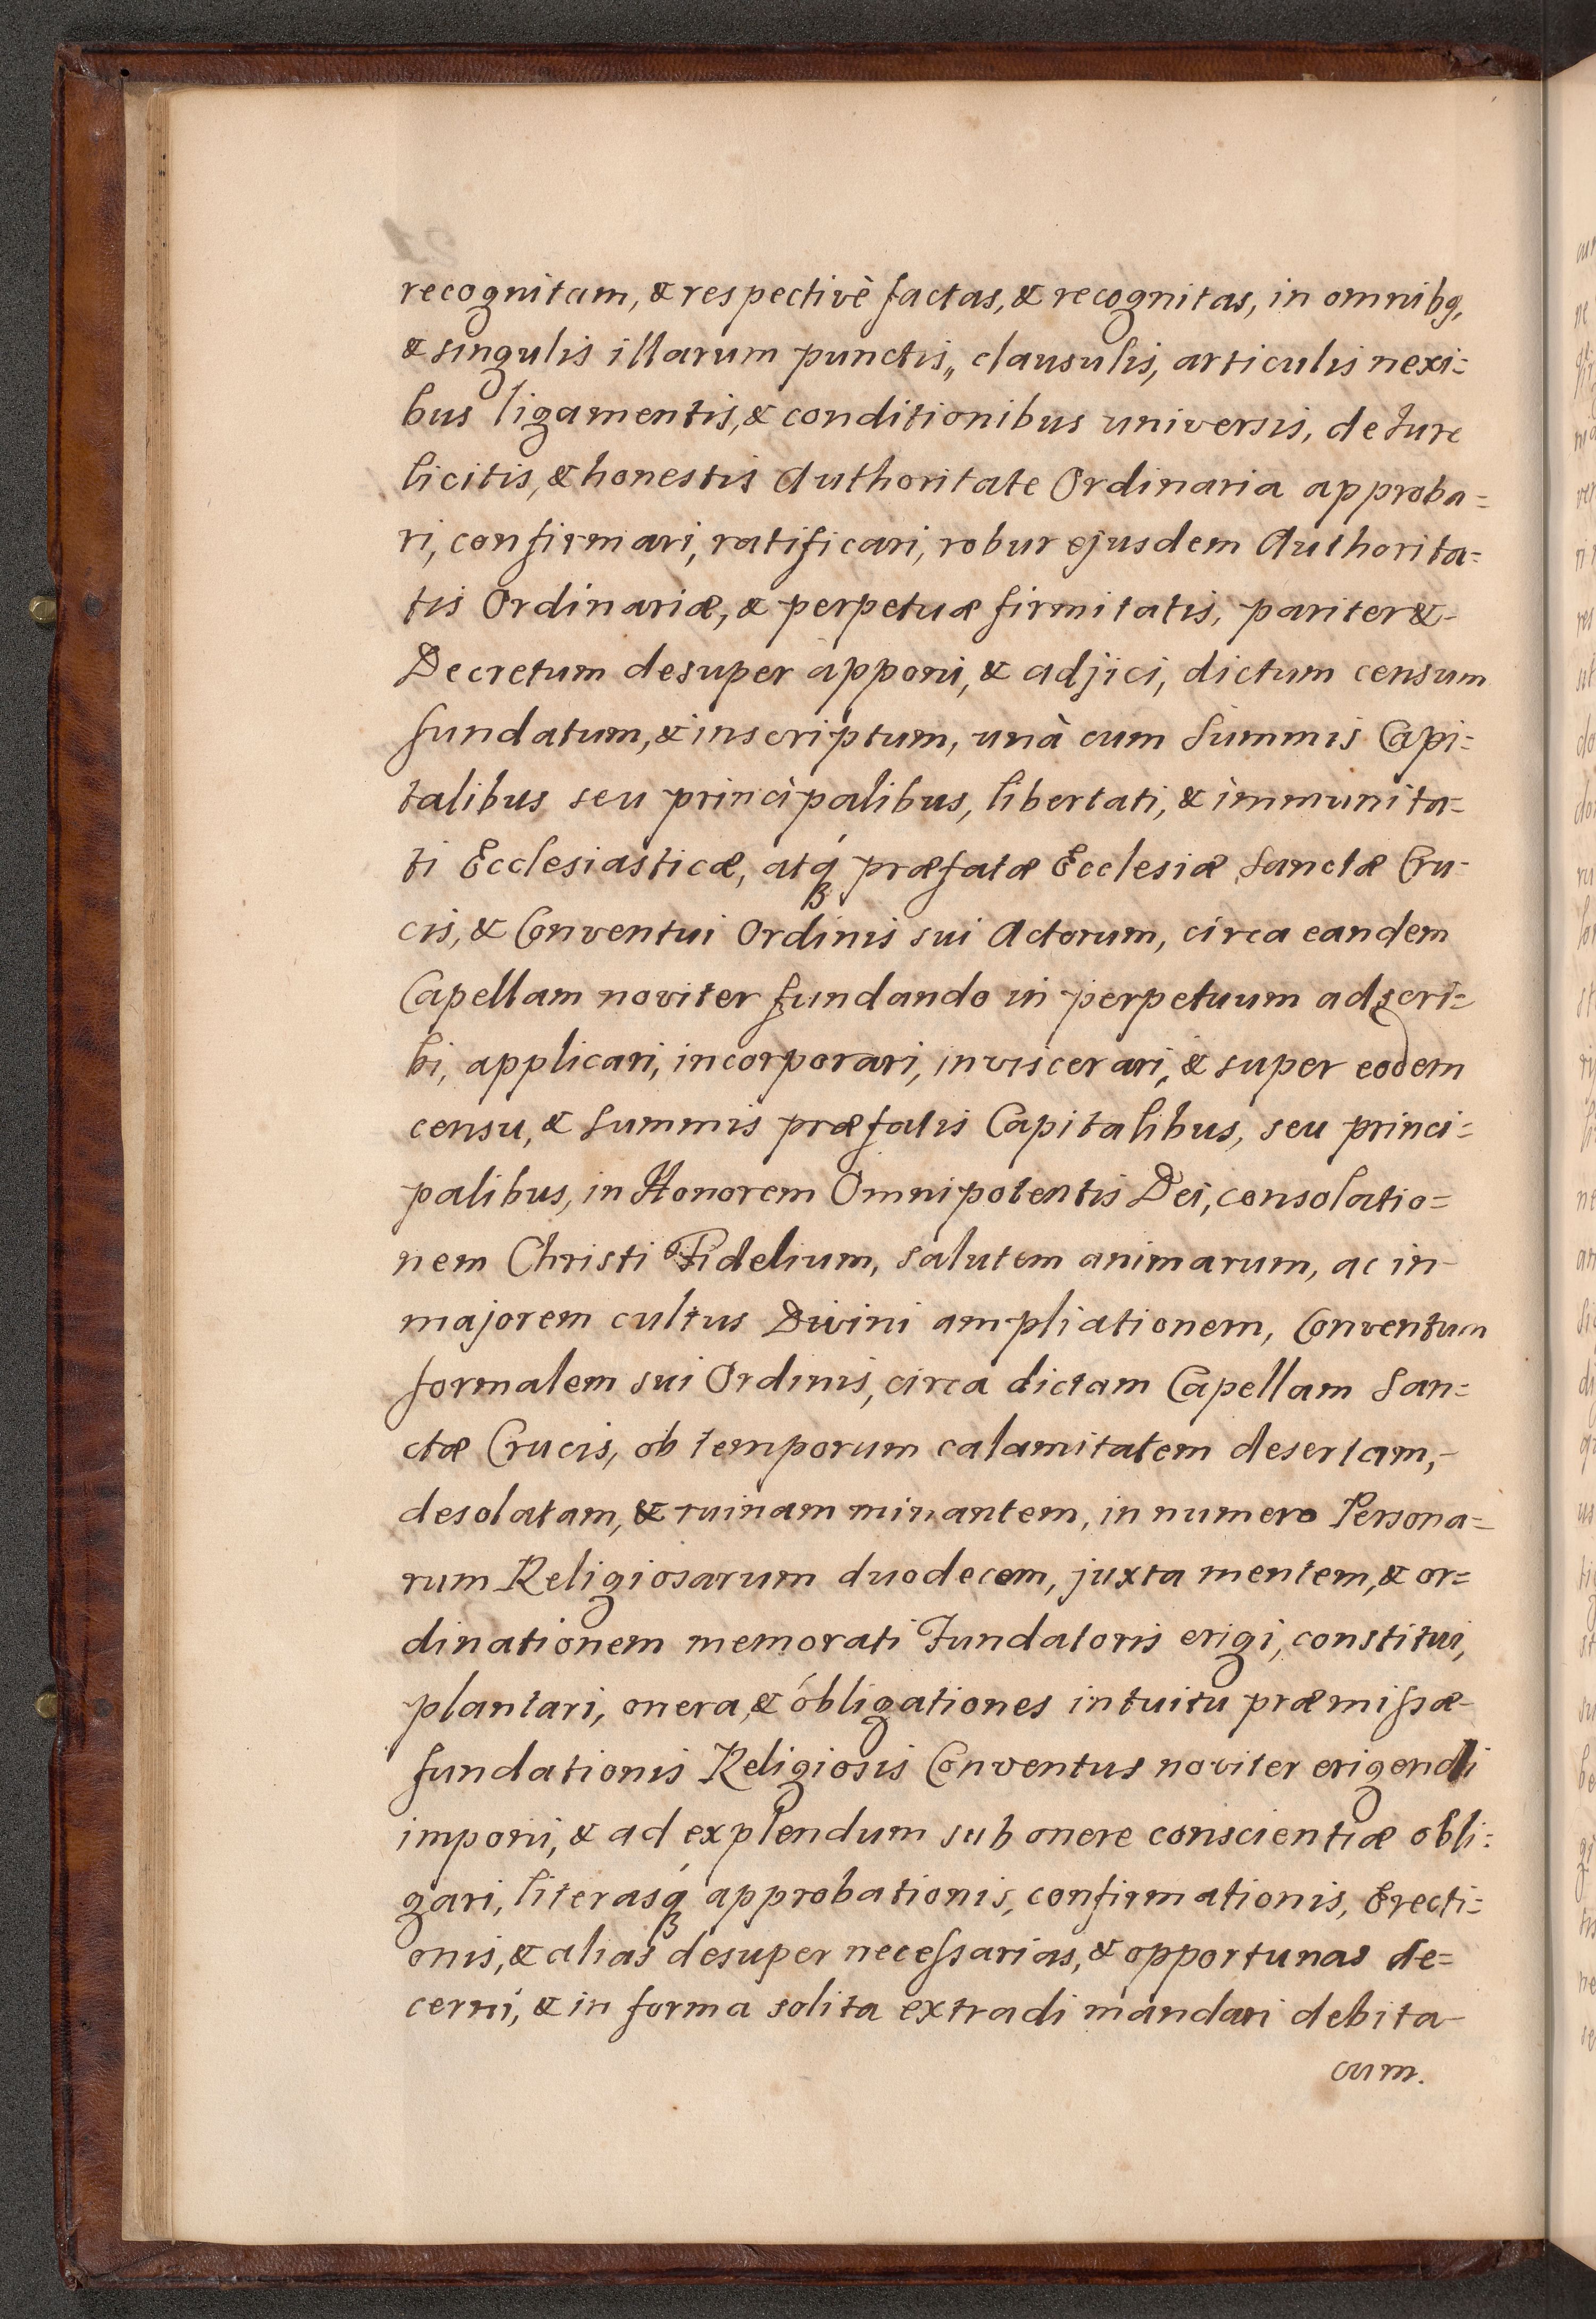 recognitam, & respectivè factas, & recognitas, in omnibq,
& singulis illarum punctis,, clausulis, articulis nexi=
bus ligamentis, & conditionibus universis, de Iure
licitis, & honestis Authoritate Ordinaria approba=
ri, confirmari, ratificari, robur ejusdem Authorita=
tis Ordinariæ, & perpetuæ firmitatis, pariter &-
Decretum desuper apponi, & adjici, dictum censum
fundatum, & inscriptum, unà cum Summis Capi=
talibus seu principalibus, libertati, & immunita=
ti Ecclesiasticæ, atqꝫ præfatæ Ecclesiæ Sanctæ Cru-
cis, & Conventui Ordinis sui Actorum, circa eandem
Capellam noviter fundando in perpetuum adscri=
bi, applicari, incorporari, inviscerari, & super eodem
censu, & Summis præfatis Capitalibus, seu princi=
palibus, in Honorem Omnipotentis Dei, consolatio=
nem Christi Fidelium, salutem animarum, ac in-
majorem cultus Divini ampliationem, Conventum
formalem sui Ordinis, circa dictam Capellam San=
ctæ Crucis, ob temporum calamitatem desertam,-
desolatam, & ruinam minantem, in numero Persona=
rum Religiosarum duodecem, juxta mentem, & or=
dinationem memorati Fundatoris erigi, constitui,
plantari, onera, & obligationes intuitu præmissæ-
fundationis Religiosis Conventus noviter erigendi
imponi, & ad explendum sub onere conscientiæ obli=
gari, literasqꝫ approbationis, confirmationis, Erecti=
onis, & alias desuper necessarias, & opportunas de=
cerni, & in forma solita extradi mandari debita-
cum.